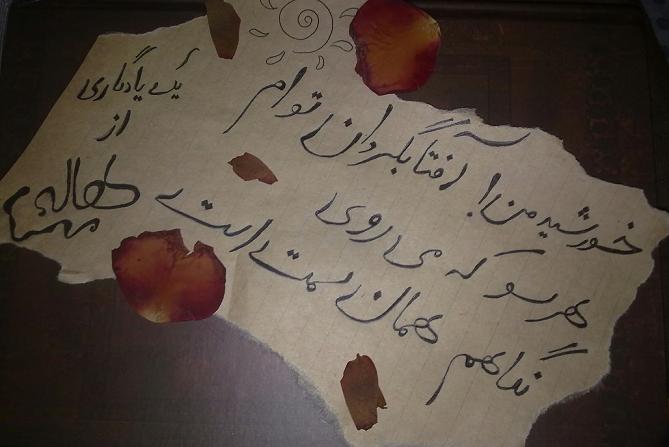 خورشید من! آفتابگردان توام
هر سو که می روی
نگاهم همان سمت است
یک یادگاری
از
هاله